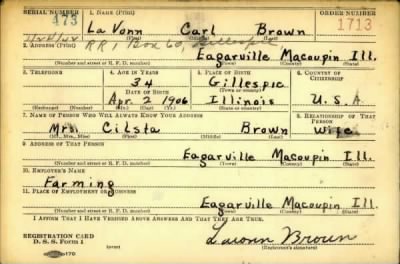 SERIAL NUMBER
1. NAME (Print)
ORDER NUMBER
473
La Vonn Carl Brown
1713
(First) (Middle) (Last)
2. ADDRESS (Print)
RR 1 Box 60, Gillespie
Eagarville Macoupin Ill.
(Number and street or R. F. D. number) (Town) (County) (State)
3. TELEPHONE
4. AGE IN YEARS
5. PLACE OF BIRTH
6. COUNTRY OF CITIZENSHIP
34
Gillespie
DATE OF BIRTH
(Town or county)
Apr. 2 1906
Illinois
U.S.A
(Exchange) (Number)
(Mo.) (Day) (Yr.)
(State or country)
7. NAME OF PERSON WHO WILL ALWAYS KNOW YOUR ADDRESS
8. RELATIONSHIP OF THAT PERSON
Mrs. Cilsta Brown
wife
(Mr., Mrs., Miss) (First) (Middle) (Last)
9. ADDRESS OF THAT PERSON
Eagarville Macoupin Ill.
(Number and street or R. F. D. number) (Town) (County) (State)
10. EMPLOYER'S NAME
Farming
11. PLACE OF EMPLOYMENT OR BUSINESS
Eagarville Macoupin Ill.
(Number and street or R. F. D. number) (Town) (County) (State)
I AFFIRM THAT I HAVE VERIFIED ABOVE ANSWERS AND THAT THEY ARE TRUE.
REGISTRATION CARD
D. S. S. Form 1
(over)
Lavonn Brown
(Registrant's signature)